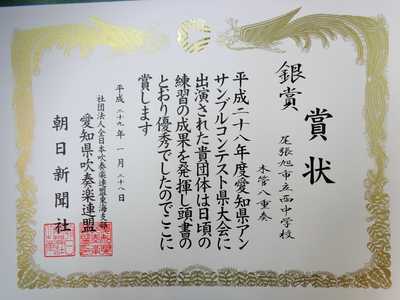 賞状
銀賞
尾張旭市立西中学校
木管八重奏
平成二十八年度愛知県アン
サンブルコンテスト県大会に
出演された貴団体は日頃の
練習の成果を発揮し頭書の
とおり優秀でしたのでここに
賞します
平成二十九年一月二十八日
社団法人全日本吹奏楽連盟東海支部
愛知県吹奏楽連盟
朝日新聞社